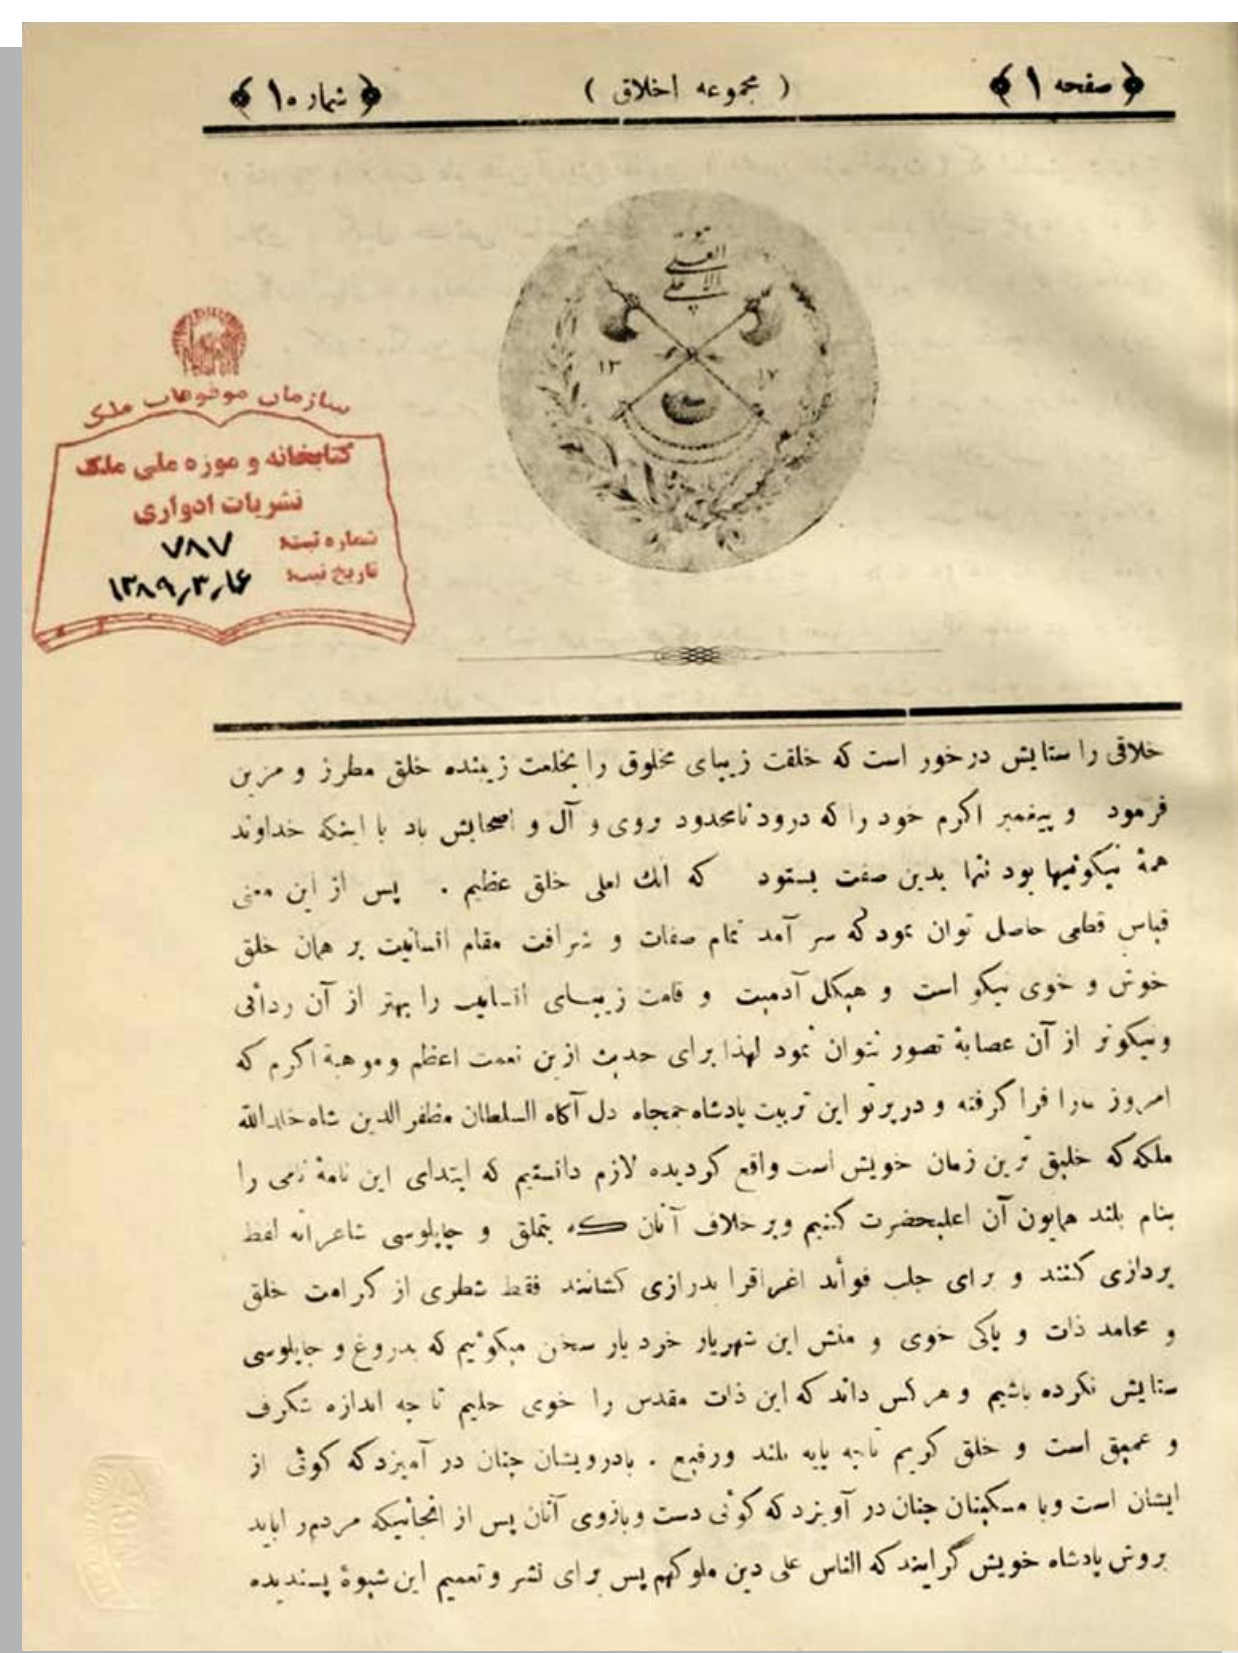 صفحه ۱
( مجموعه اخلاق )
شماره ۱
العلی
الاعلی
۱۳ ۱۷
سازمان موقوفات ملک
کتابخانه و موزه ملی ملک
نشریات ادواری
شماره ثبت: ۷۸۷
تاریخ ثبت: ۱۳۸۹٫۳٫۱۶
خلاقی را ستایش درخور است که خلقت زیبای مخلوق را بخلعت زیبنده خلق مطرز و مزین
فرمود و پیغمبر اکرم خود را که درود نامحدود بروی و آل و اصحابش باد با اینکه خداوند
همهٔ نیکوئیها بود تنها بدین صفت بستود که انك لعلی خلق عظیم . پس از این معنی
قیاس قطعی حاصل توان نمود که سر آمد تمام صفات و شرافت مقام انسانیت بر همان خلق
خوش و خوی نیکو است و هیکل آدمیت و قامت زیبـای انسانیت را بهتر از آن ردائی
ونیکوتر از آن عصابهٔ تصور نتوان نمود لهذا برای حدیث ازین نعمت اعظم وموهبهٔ اکرم که
امروز مارا فرا گرفته و در پرتو این تربیت پادشاه جمجاه دل آگاه السلطان مظفر الدین شاه خلدالله
ملکه که خلیق ترین زمان خویش است واقع گردیده لازم دانستیم که ابتدای این نامهٔ نامی را
بنام بلند همایون آن اعلیحضرت کنیم وبر خلاف آنان که بتملق و چاپلوسی شاعرانه لفظ
پردازی کنند و برای جلب فوائد اغراقرا بدرازی کشانند فقط شطری از کرامت خلق
و محامد ذات و پاکی خوی و منش این شهریار خرد یار سخن میگوئیم که بدروغ و چاپلوسی
ستایش نکرده باشیم و هر کس داند که این ذات مقدس را خوی حلیم تا چه اندازه شگرف
و عمیق است و خلق کریم تاچه پایه بلند ورفیع . بادرویشان چنان در آمیزد که گوئی از
ایشان است وبا مسکینان چنان در آویزد که گوئی دست وبازوی آنان پس از انجائیکه مردمرا باید
بروش پادشاه خویش گرایند که الناس علی دین ملوکهم پس برای نشر و تعمیم این شیوهٔ پسندیده